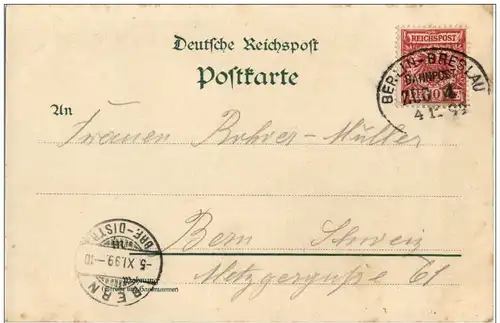 Deutsche Reichspost
Postkarte
REICHSPOST
BERLIN-BRESLAU
BAHNPOST
ZUG 4
4 11 99
An
Frauen Rohrer-Müller
Bern Schweiz
Metzgergasse 61
BRE-DISTR
5.XI.99.-10
BERN
Wohnung
(Straße und Hausnummer)